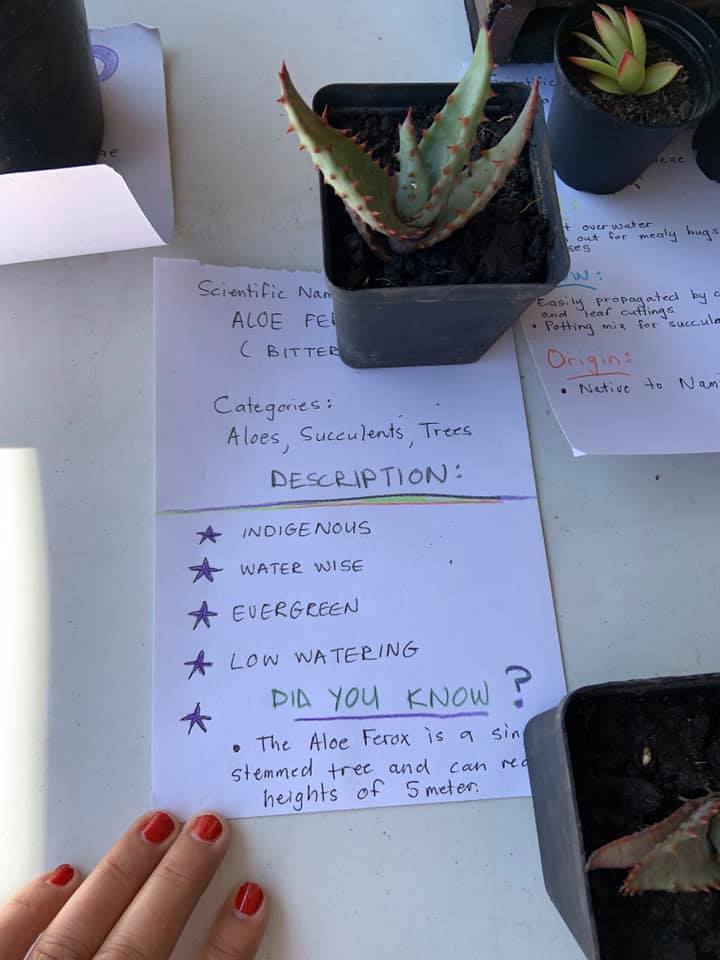 Scientific Nam
ALOE FE
( BITTER
Categories:
Aloes, Succulents, Trees
DESCRIPTION:
INDIGENOUS
WATER WISE
EVERGREEN
LOW WATERING
DID YOU KNOW?
• The Aloe Ferox is a sin
stemmed tree and can rea
heights of 5 meter.
overwater
out for mealy bugs
Easily propagated by
and leaf cuttings
• Potting mix for succule
Origin:
• Native to Nami